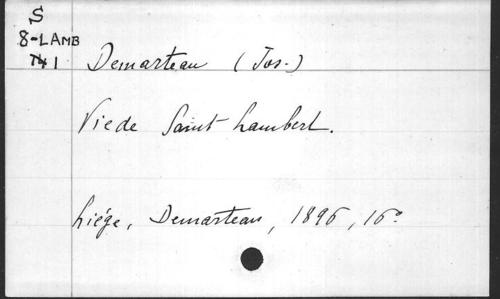 S
8-LAMB
1
Demarteau (Jos.)
Vie de Saint Lambert.
Liége, Demarteau, 1896, 16°